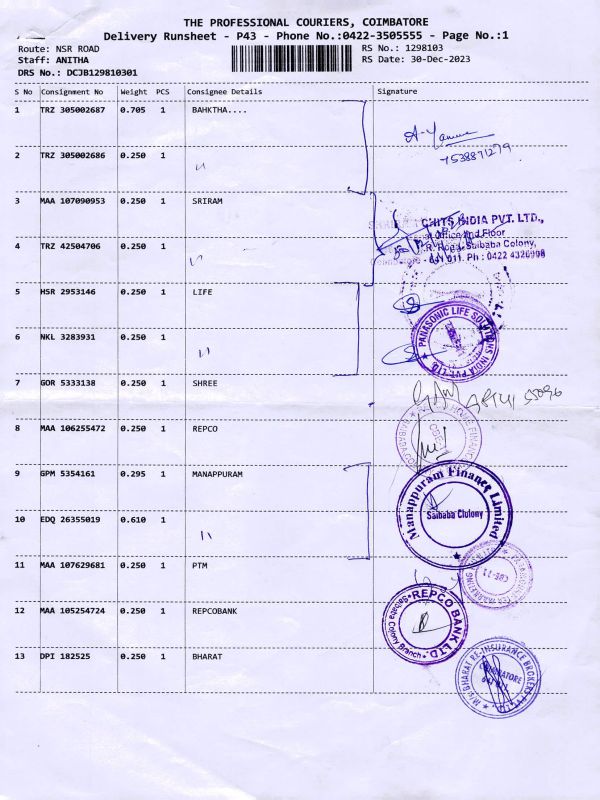 THE PROFESSIONAL COURIERS, COIMBATORE
Delivery Runsheet - P43 - Phone No.:0422-3505555 - Page No.:1
Route: NSR ROAD
RS No.: 1298103
Staff: ANITHA
RS Date: 30-Dec-2023
DRS No.: DCJB129810301
S No Consignment No Weight PCS Consignee Details Signature
1 TRZ 305002687 0.705 1 BAHKTHA....
7538871279
2 TRZ 305002686 0.250 1 "
3 MAA 107090953 0.250 1 SRIRAM
CHITS INDIA PVT. LTD.,
Saibaba Colony,
4 TRZ 42504706 0.250 1 "
- 641 011. Ph : 0422 4326998
5 HSR 2953146 0.250 1 LIFE
PANASONIC LIFE SOLUTIONS INDIA PVT. LTD.
6 NKL 3283931 0.250 1 "
7 GOR 5333138 0.250 1 SHREE
8 MAA 106255472 0.250 1 REPCO
HOME FINANCE
9 GPM 5354161 0.295 1 MANAPPURAM
Manappuram Finance Limited
Saibaba Clolony
10 EDQ 26355019 0.610 1 "
11 MAA 107629681 0.250 1 PTM
CBE-11
12 MAA 105254724 0.250 1 REPCOBANK
REPCO BANK LTD.
Saibaba Colony Branch
13 DPI 182525 0.250 1 BHARAT
M/s BHARAT RE-INSURANCE BROKERS PVT LTD
COIMBATORE
641 011